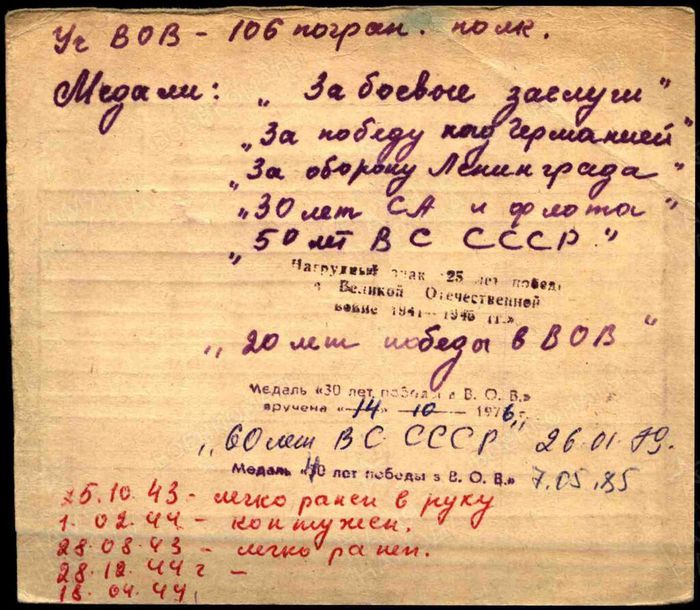 Уч ВОВ - 106 погран. полк.
Медали: „За боевые заслуги"
„За победу над Германией"
„За оборону Ленинграда"
„30 лет СА и флота"
„50 лет ВС СССР."
Нагрудный знак «25 лет победы
в Великой Отечественной
войне 1941—1945 гг.»
„20 лет победы в ВОВ"
Медаль «30 лет победы в В. О. В.»
вручена «14» 10 1976 г.
„60 лет ВС СССР" 26.01.79.
Медаль «40 лет победы в В. О. В.» 7.05.85
25.10.43 - легко ранен в руку
1.02.44 - контужен.
28.08.43 - легко ранен.
28.12.44 г -
18.04.44.